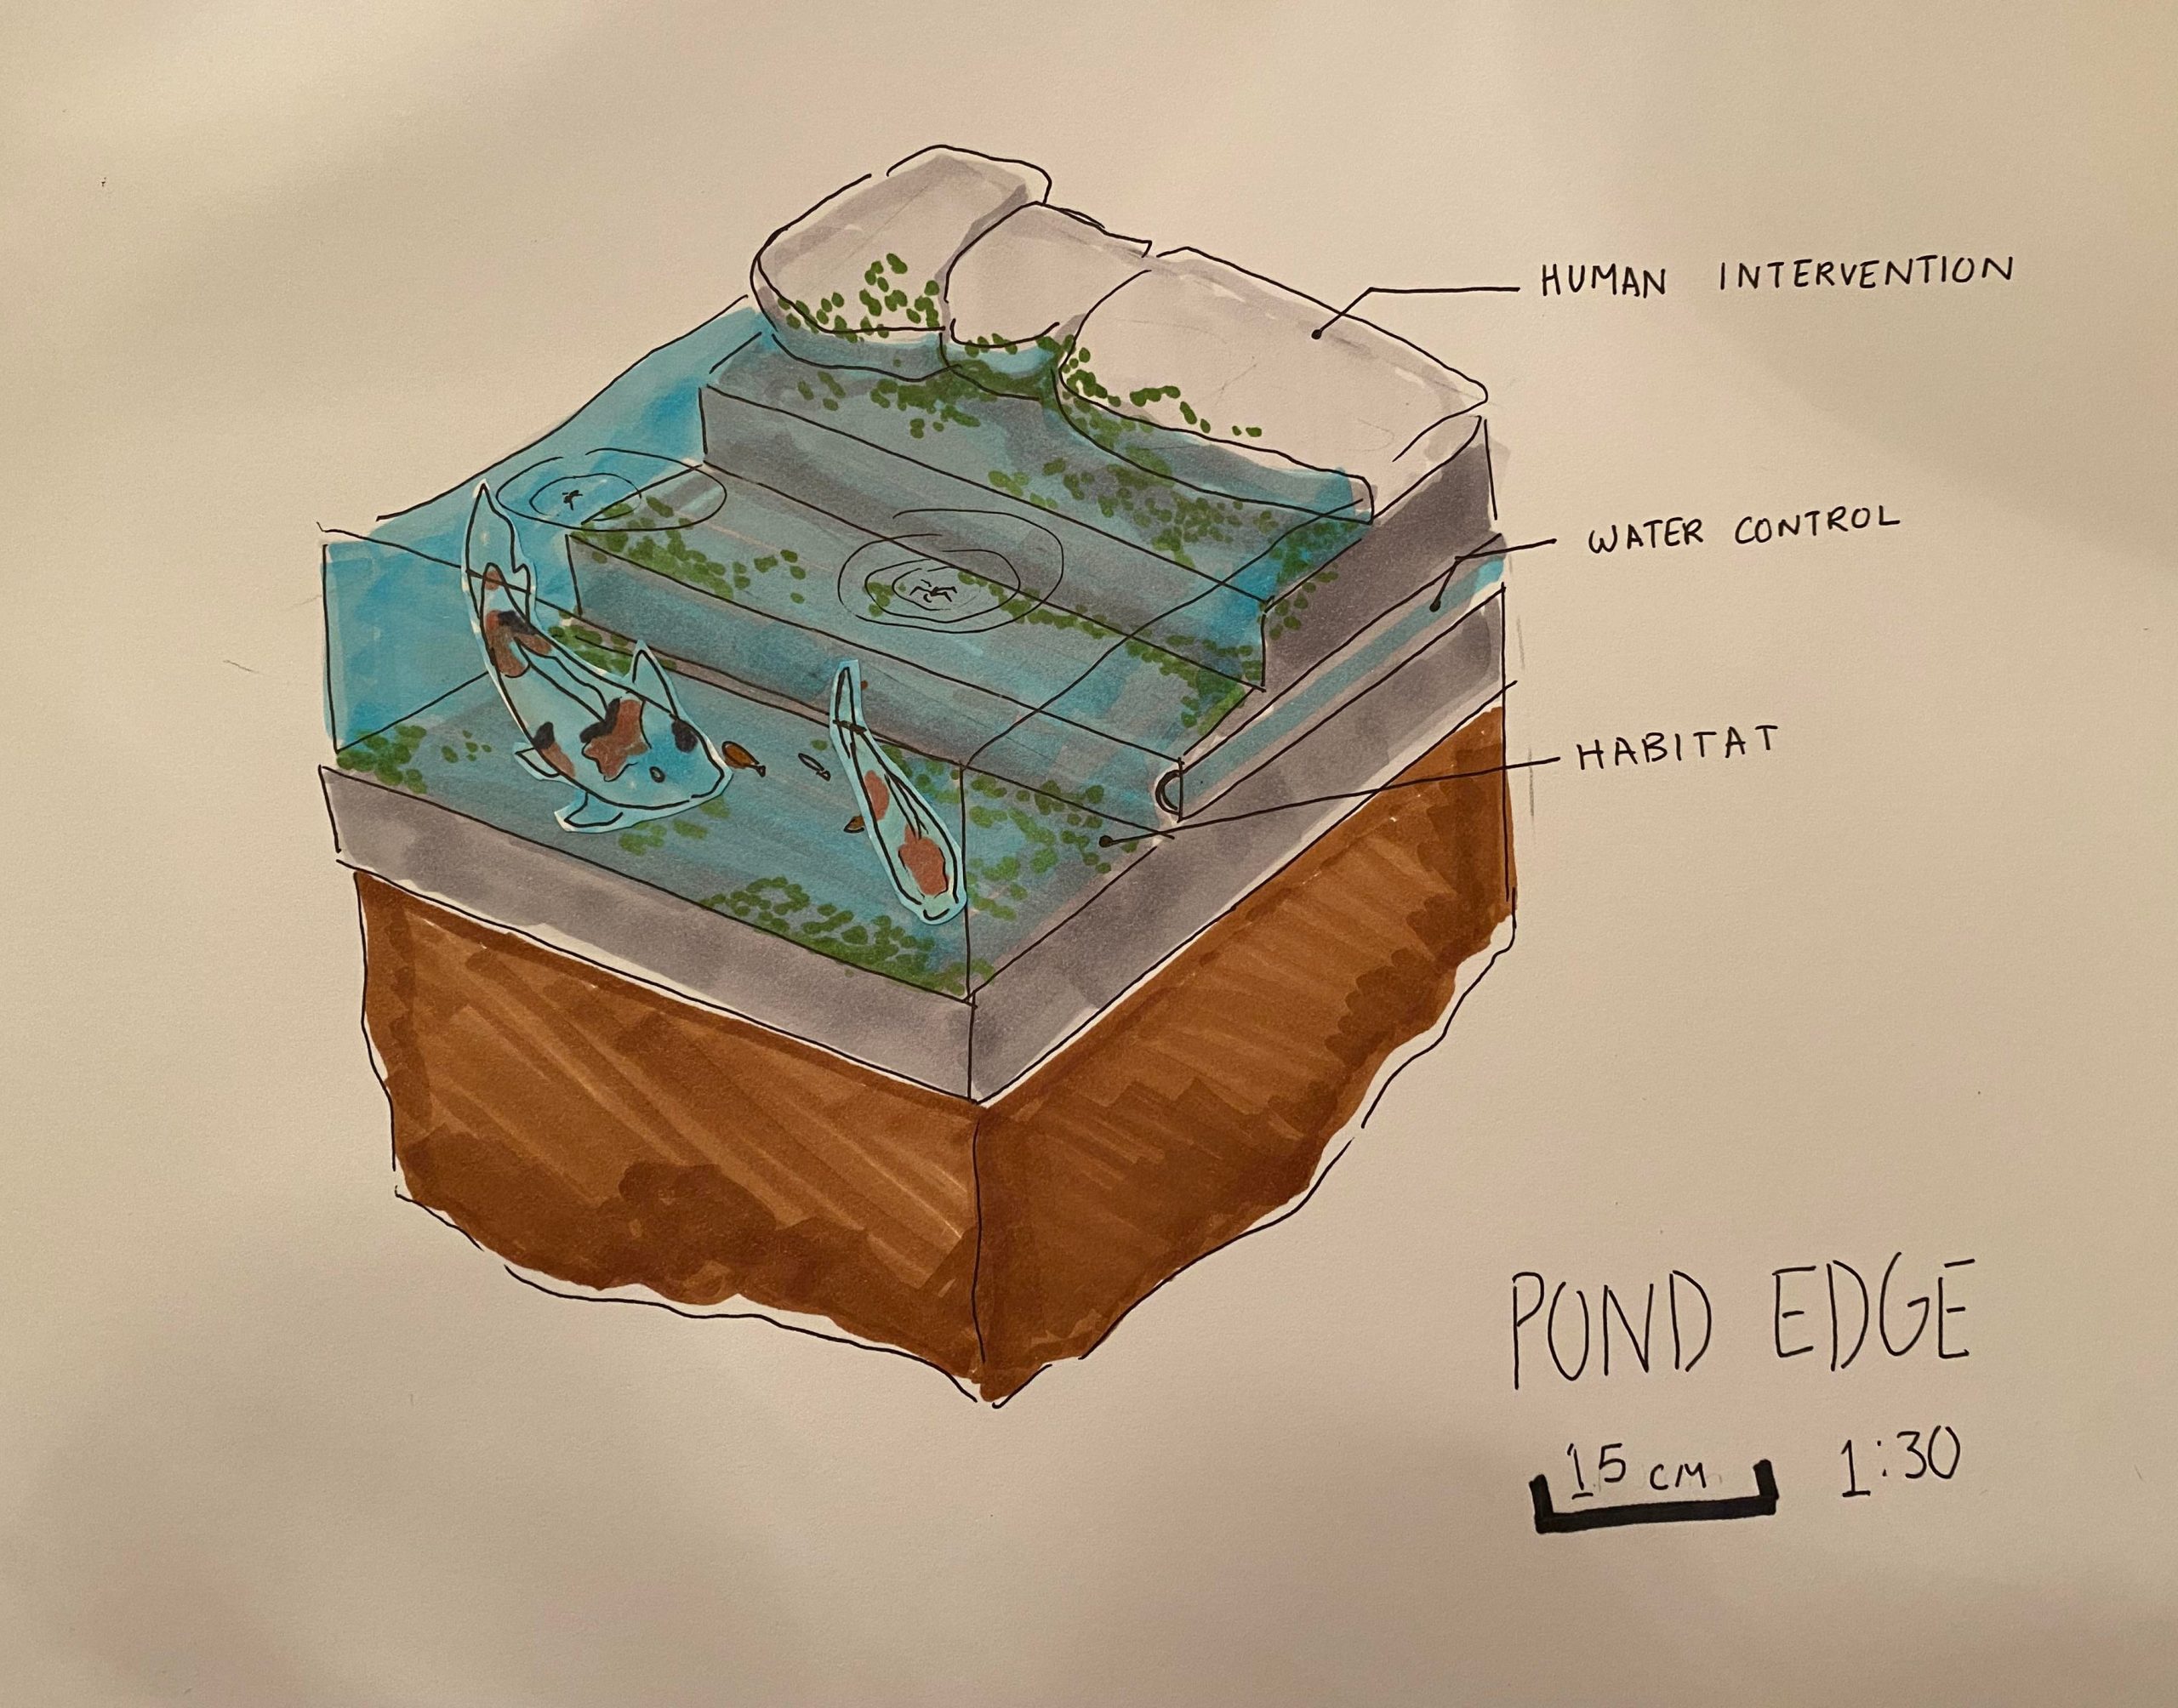 HUMAN INTERVENTION
WATER CONTROL
HABITAT
POND EDGE
15 CM 1:30